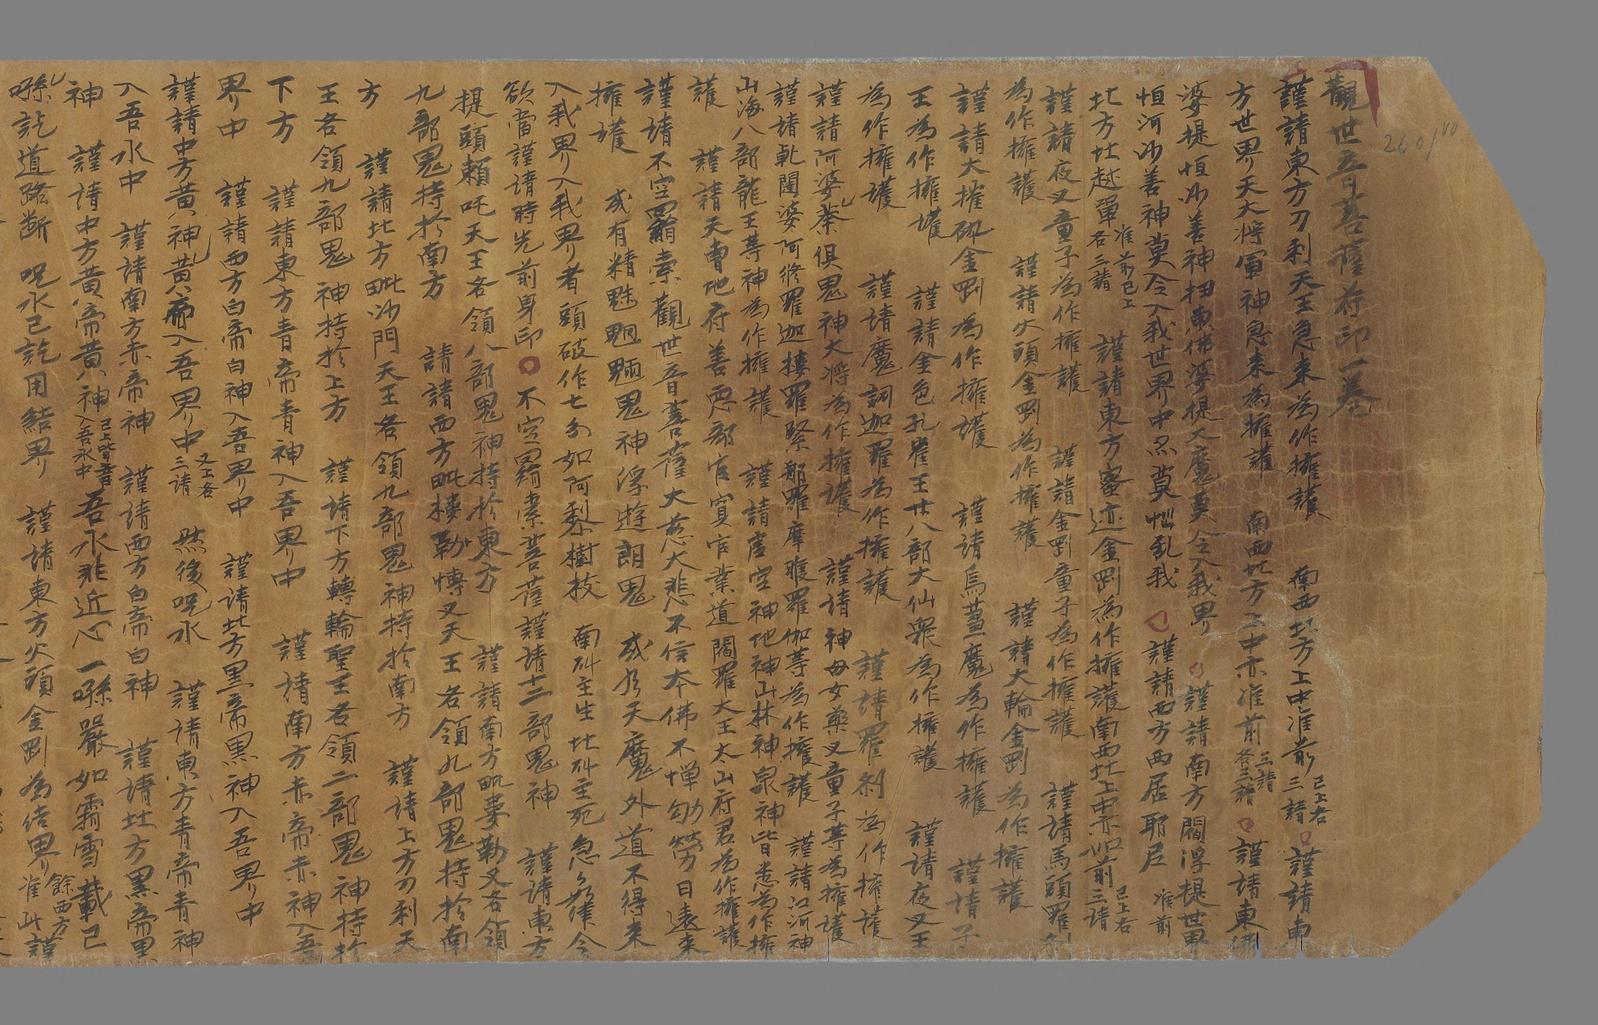 觀世音菩薩符印一卷
謹請東方刀利天王急來為作擁護 南西北方上中准前 已上各三請 謹請東
方世界天大將軍神急來為擁護 南西北方上中亦准前 三請各三請 謹請東佛
婆提恒沙善神 大魔莫令入我界 謹請南方閻浮提世界
恒河沙善神莫令入我世界中亦莫惱亂我 謹請西方西居耶尼 准前
北方北越單 准前已上各三請 謹請東方密迹金剛為作擁護南西北上中亦如前 已上各三請
謹請夜叉童子為作擁護 謹請金剛童子為作擁護 謹請馬頭羅剎
為作擁護 謹請火頭金剛為作擁護 謹請大輪金剛為作擁護
謹請大擢砍金剛為作擁護 謹請烏蒭魔為作擁護 謹請子
王為作擁護 謹請金色孔雀王廿八部大仙眾為作擁護 謹請夜叉王
為作擁護 謹請魔訶迦羅為作擁護 謹請羅剎為作擁護
謹請阿婆荼俱鬼神大將為作擁護 謹請神母女藥叉童子等為擁護
謹請乾闥婆阿修羅迦樓羅緊那羅摩睺羅伽等為作擁護 謹請江河神
山海八部龍王等神為作擁護 謹請虛空神地神山林神泉神皆悉為作擁
護 謹請天曹地府善惡部官冥官業道閻羅大王太山府君為作擁護
謹請不空罥索觀世音菩薩大慈大悲不信本佛不憚劬勞日遠來
擁護 或有精魅魍魎鬼神浮遊朗鬼 或乃天魔外道不得來
入我界入我界者頭破作七分如阿梨樹枝 南斗主生北斗主死急急如律令
欲當謹請時先前身印 不空罥索菩薩謹請十二部鬼神 謹請東方
提頭賴吒天王各領八部鬼神持於東方 謹請南方毗婁勒叉各領
九部鬼持於南方 請請西方毗樓勒博叉天王各領九部鬼持於南
方 謹請北方毗沙門天王各領九部鬼神持於南方 謹請上方刀利天
王各領九部鬼神持於上方 謹請下方轉輪聖王各領二部鬼神持於
下方 謹請東方青帝青神入吾界中 謹請南方赤帝赤神入吾
界中 謹請西方白帝白神入吾界中 謹請北方黑帝黑神入吾界中
謹請中方黃神黃帝入吾界中 又上各三請 然後呪水 謹請東方青帝青神
入吾水中 謹請南方赤帝神 謹請西方白帝白神 謹請北方黑帝黑
神 謹請中方黃帝黃神 已上皆言入吾水中 吾水非近心一噀嚴如霜雪載已
噀訖道路斷 呪水已訖用結界 謹請東方火頭金剛為結界 餘西方准此 謹